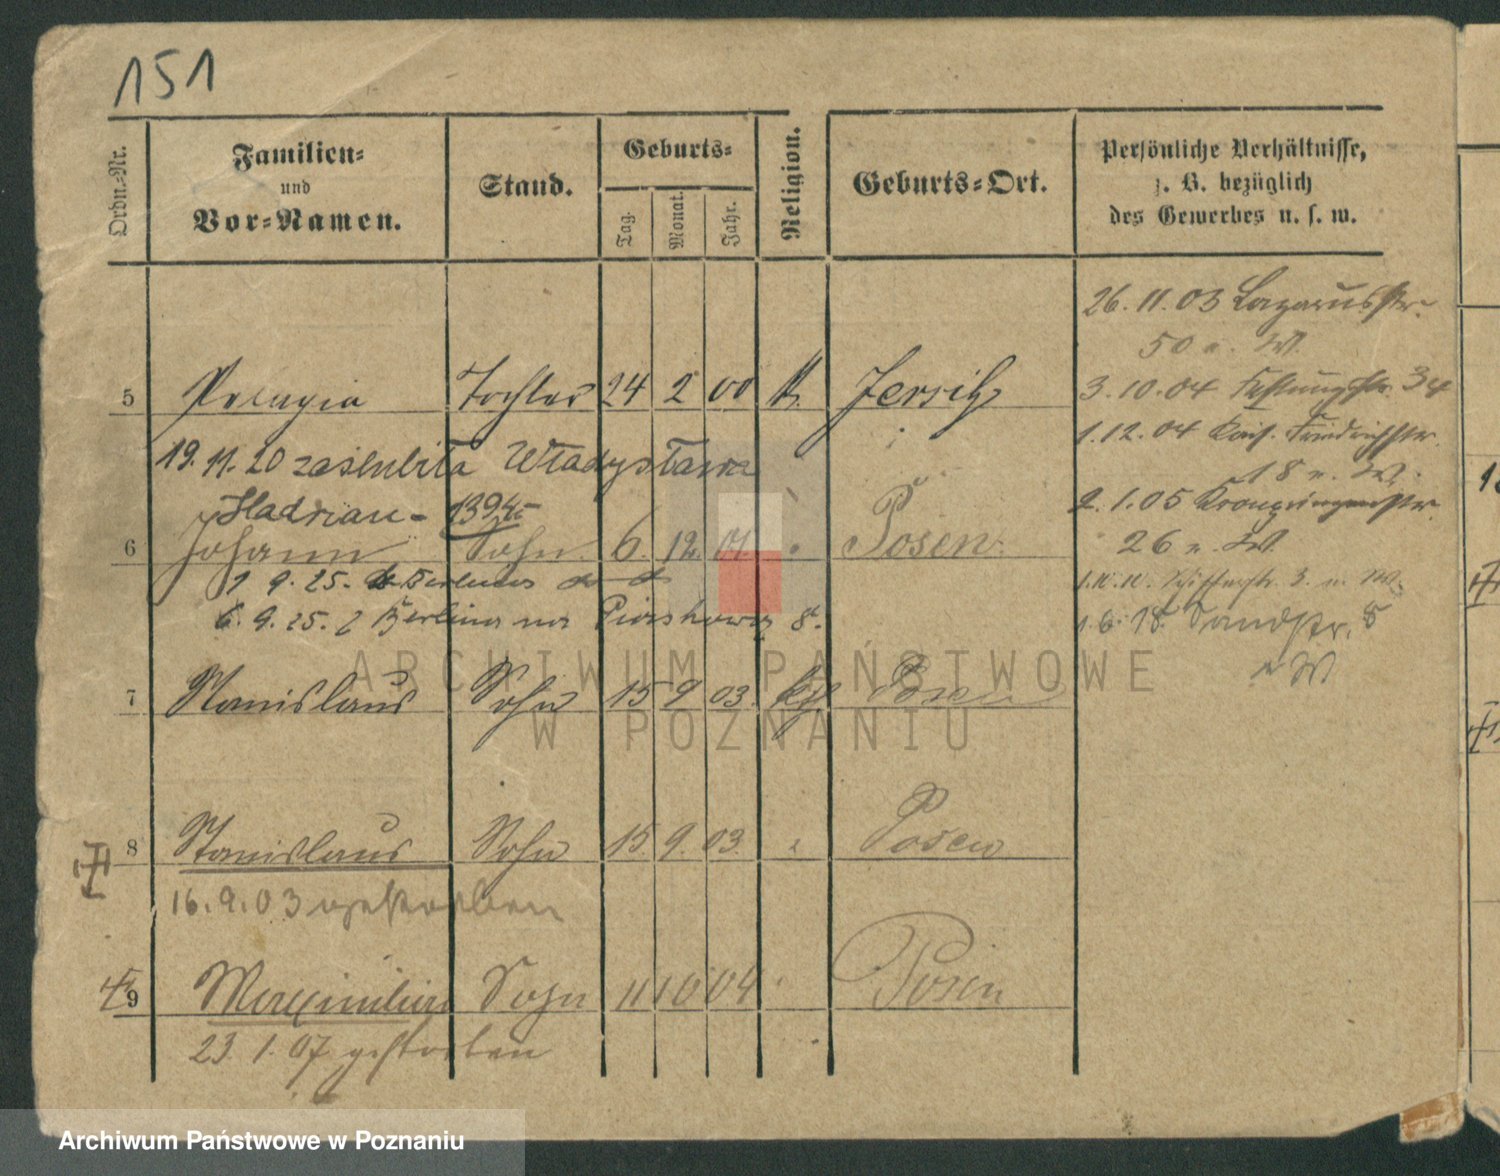 151
Ordn.-Nr.
Familien-
und
Vor-Namen.
Stand.
Geburts-
Tag.
Monat.
Jahr.
Religion.
Geburts-Ort.
Persönliche Verhältnisse,
z. B. bezüglich
des Gewerbes u. s. w.
26. 11. 03 Lazarusstr.
50 n. W.
5 Pelagia Tochter 24 2 00 k. Jersitz
3. 10. 04 Festungstr. 34
19. 11. 20 zaślubiła Władysława
1. 12. 04 Kais. Friedrichstr.
18 n. W.
Hadrian - 13945
2. 1. 05 Kronprinzenstr.
6 Johann Sohn 6. 12. 01. Posen
26 n. W.
1 9. 25. Berlina
1. 10. 10. 3. n. W.
6. 9. 25. z Berlina na Piaskowa 8.
1. 6. 18. Sandstr. 8
n W
7 Stanislaus Sohn 15 9 03. kth Posen
8 Stanislaus Sohn 15. 9. 03. Posen
16. 9. 03 gestorben
9 Maximilian Sohn 11 10 04 Posen
23. 1. 07 gestorben
ARCHIWUM PAŃSTWOWE
W POZNANIU
Archiwum Państwowe w Poznaniu